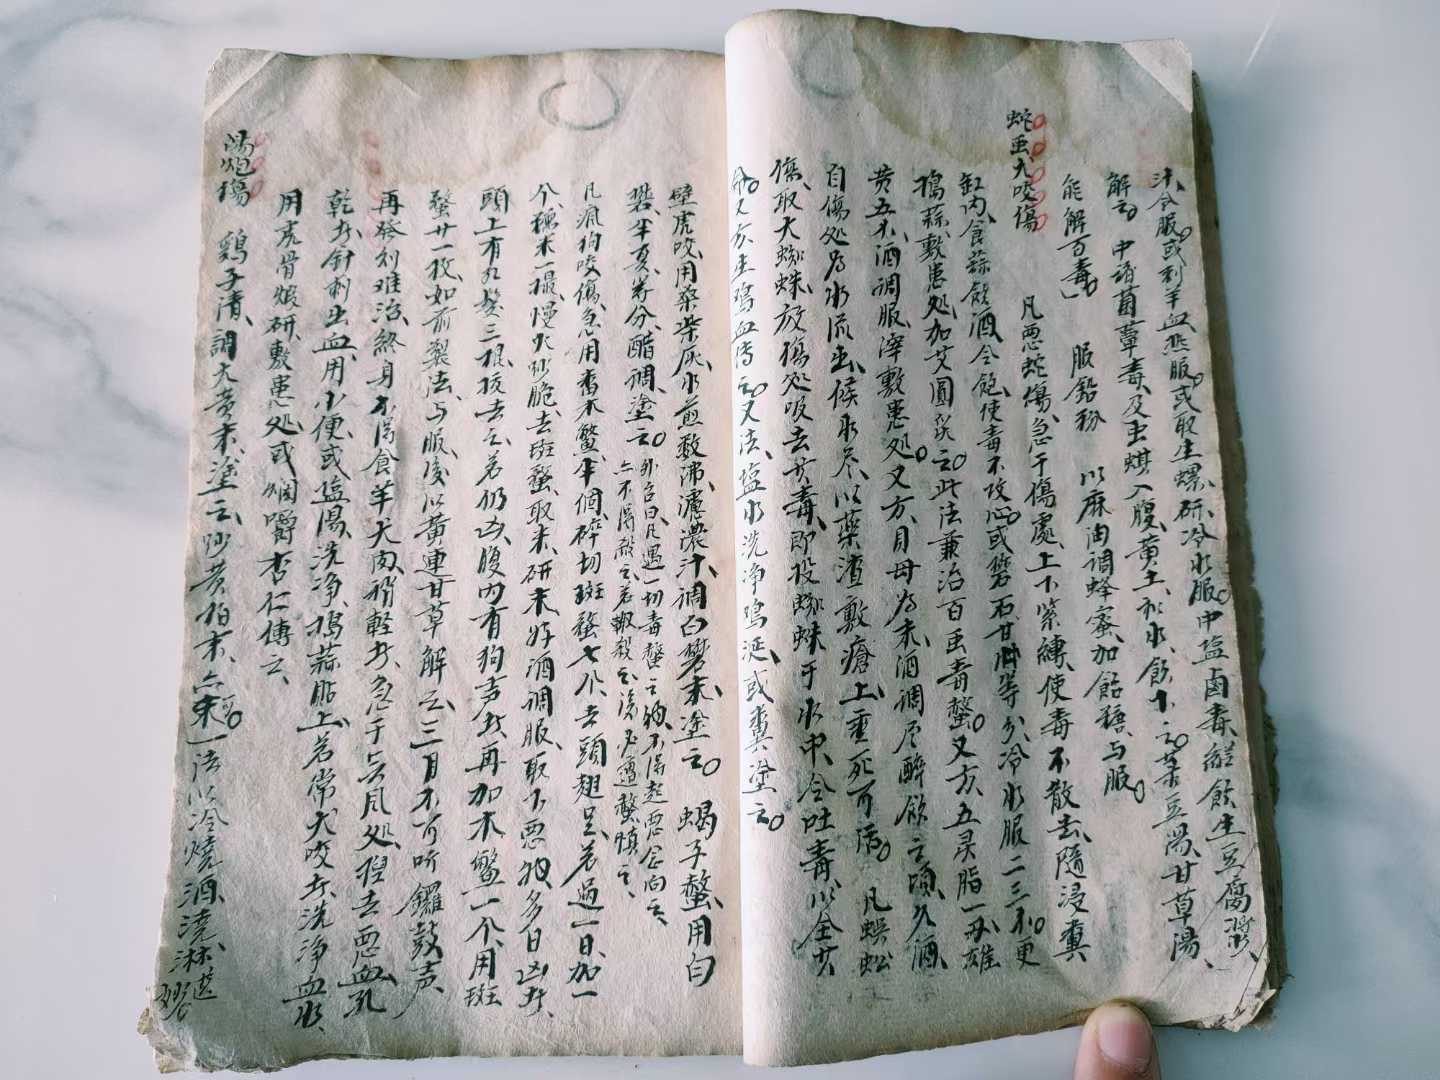 汁令服或刺羊血热服或取生螺研冷水服中塩鹵毒縱飲生豆腐漿
解之 中諸菌蕈毒及虫蜞入腹黄土和水飲十之菉豆湯甘草湯
能解百毒 服鉛粉 以麻油調蜂蜜加飴糖与服
蛇虫犬咬傷 凡悪蛇傷急于傷處上下緊縛使毒不散去隨浸糞
缸内食蒜飲酒令飽使毒不攻心或礬石甘草等分冷水服二三不更
搗蒜敷患处加艾圓炙之此法兼治百虫毒螫又方五灵脂一雄
黄五酒調服滓敷患处又方貝母为末酒調尽醉飲之頃久酒
自傷处为水流出候水尽以藥渣敷瘡上垂死可活 凡蜈蚣
傷取大蜘蛛放傷处吸去其毒即投蜘蛛于水中令吐毒以全其
命又方生鸡血傅之又法塩水洗净鸡涎或糞塗之
壁虎咬用桑柴灰水煎数沸濾濃汁調白礬末塗之 蝎子螫用白
礬半夏等分醋調塗之 外台曰凡遇一切毒螫之物不得起悪念向之
亦不得殺之若輙殺之後必遭螫慎之
凡瘋狗咬傷急用番木鱉半個碎切斑蝥七个去頭翅足若過一日加一
个糯米一撮慢火炒脆去斑蝥取米研末好酒調服取下悪物多日凶
頭上有九髮三根拔去之若仍凶腹内有狗声再加木鱉一个用斑
蝥廿一枚如前製法与服後以黄連甘草解之三月不可听鑼鼓声
再發则难治終身不得食羊犬肉稍輕者急于去風处捏去悪血孔
乾者針刺出血用小便或塩湯洗净搗蒜貼上若常犬咬者洗净血水
用虎骨煅研敷患处或烟嚼杏仁傅之
湯炮傷 鷄子清調大黄末塗之炒黄柏末亦可一法以冷燒酒澆淋甚
妙